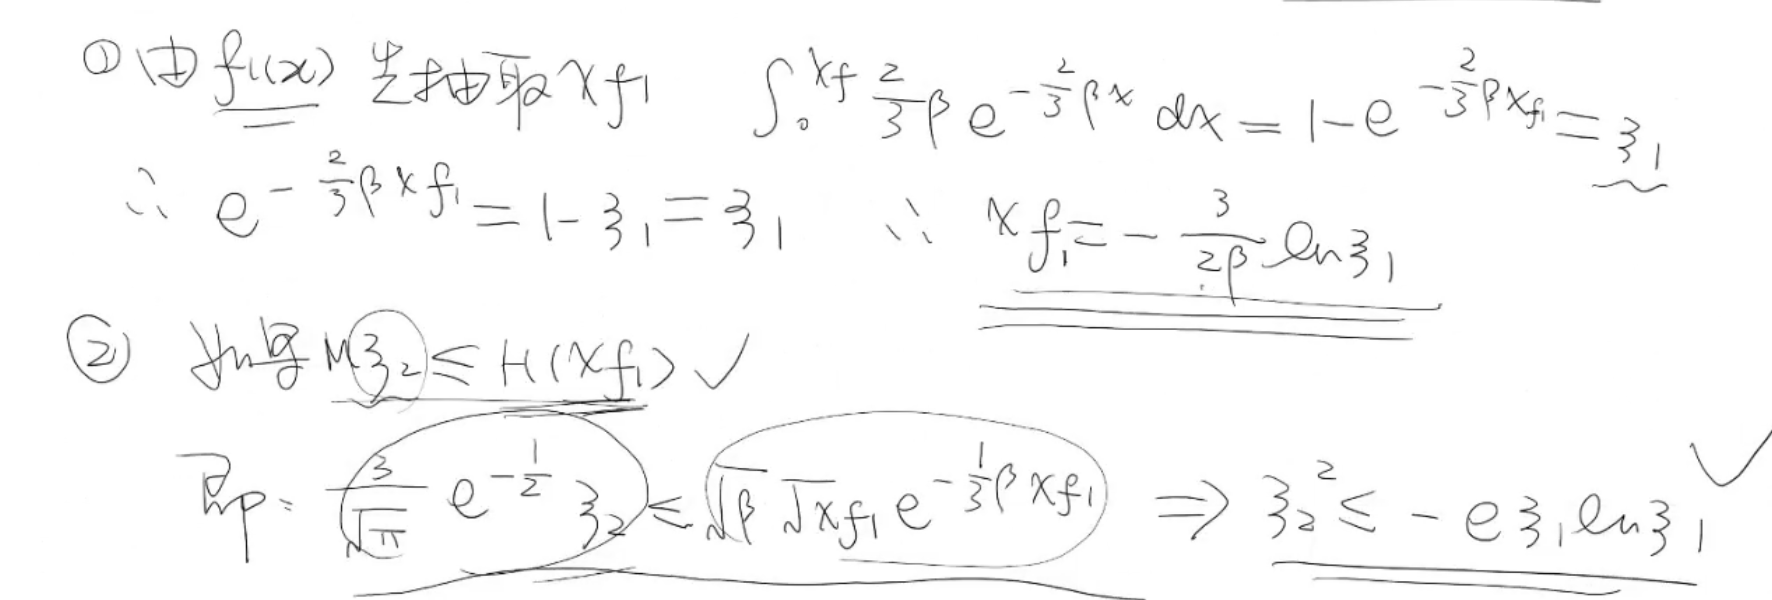 ① 由 f₁(x) 先抽取 x_{f₁} ∫₀^{x_f} \frac{2}{3}β e^{-\frac{2}{3}βx} dx = 1-e^{-\frac{2}{3}βx_{f₁}} = ξ₁
∴ e^{-\frac{2}{3}βx_{f₁}} = 1-ξ₁ = ξ₁ ∴ x_{f₁} = -\frac{3}{2β} ln ξ₁
② 如果 Mξ₂ ≤ H(x_{f₁}) ✓
即: \frac{3}{\sqrt{π}} e^{-\frac{1}{2}} ξ₂ ≤ \sqrt{β} \sqrt{x}_{f₁} e^{-\frac{1}{3}βx_{f₁}} ⇒ ξ₂² ≤ -eξ₁ ln ξ₁ ✓